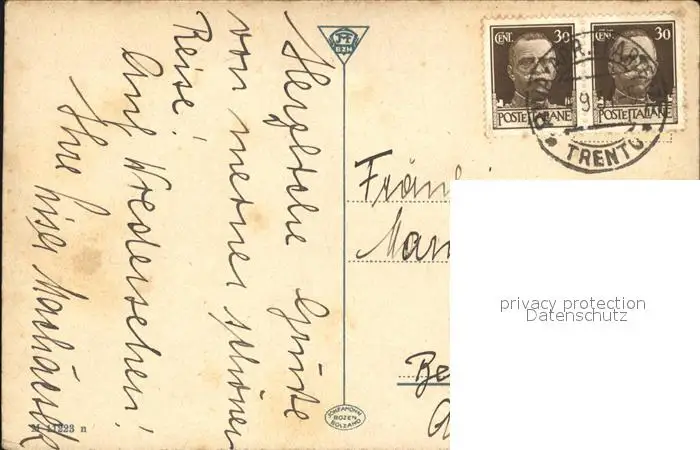 Herzliche Grüsse
von meiner schönen
Reise!
Auf Wiedersehen!
Ihre
JF
BZN
CENT. 30
POSTE ITALIANE
CENT. 30
POSTE ITALIANE
9
TRENTO
Fräul
Mar
Be
privacy protection
Datenschutz
JOH.F.AMONN
BOZEN
BOLZANO
11223 n